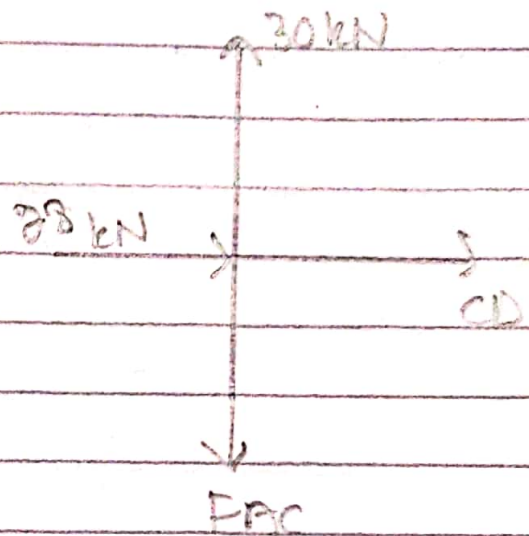 30kN
28 kN
CD
FAC